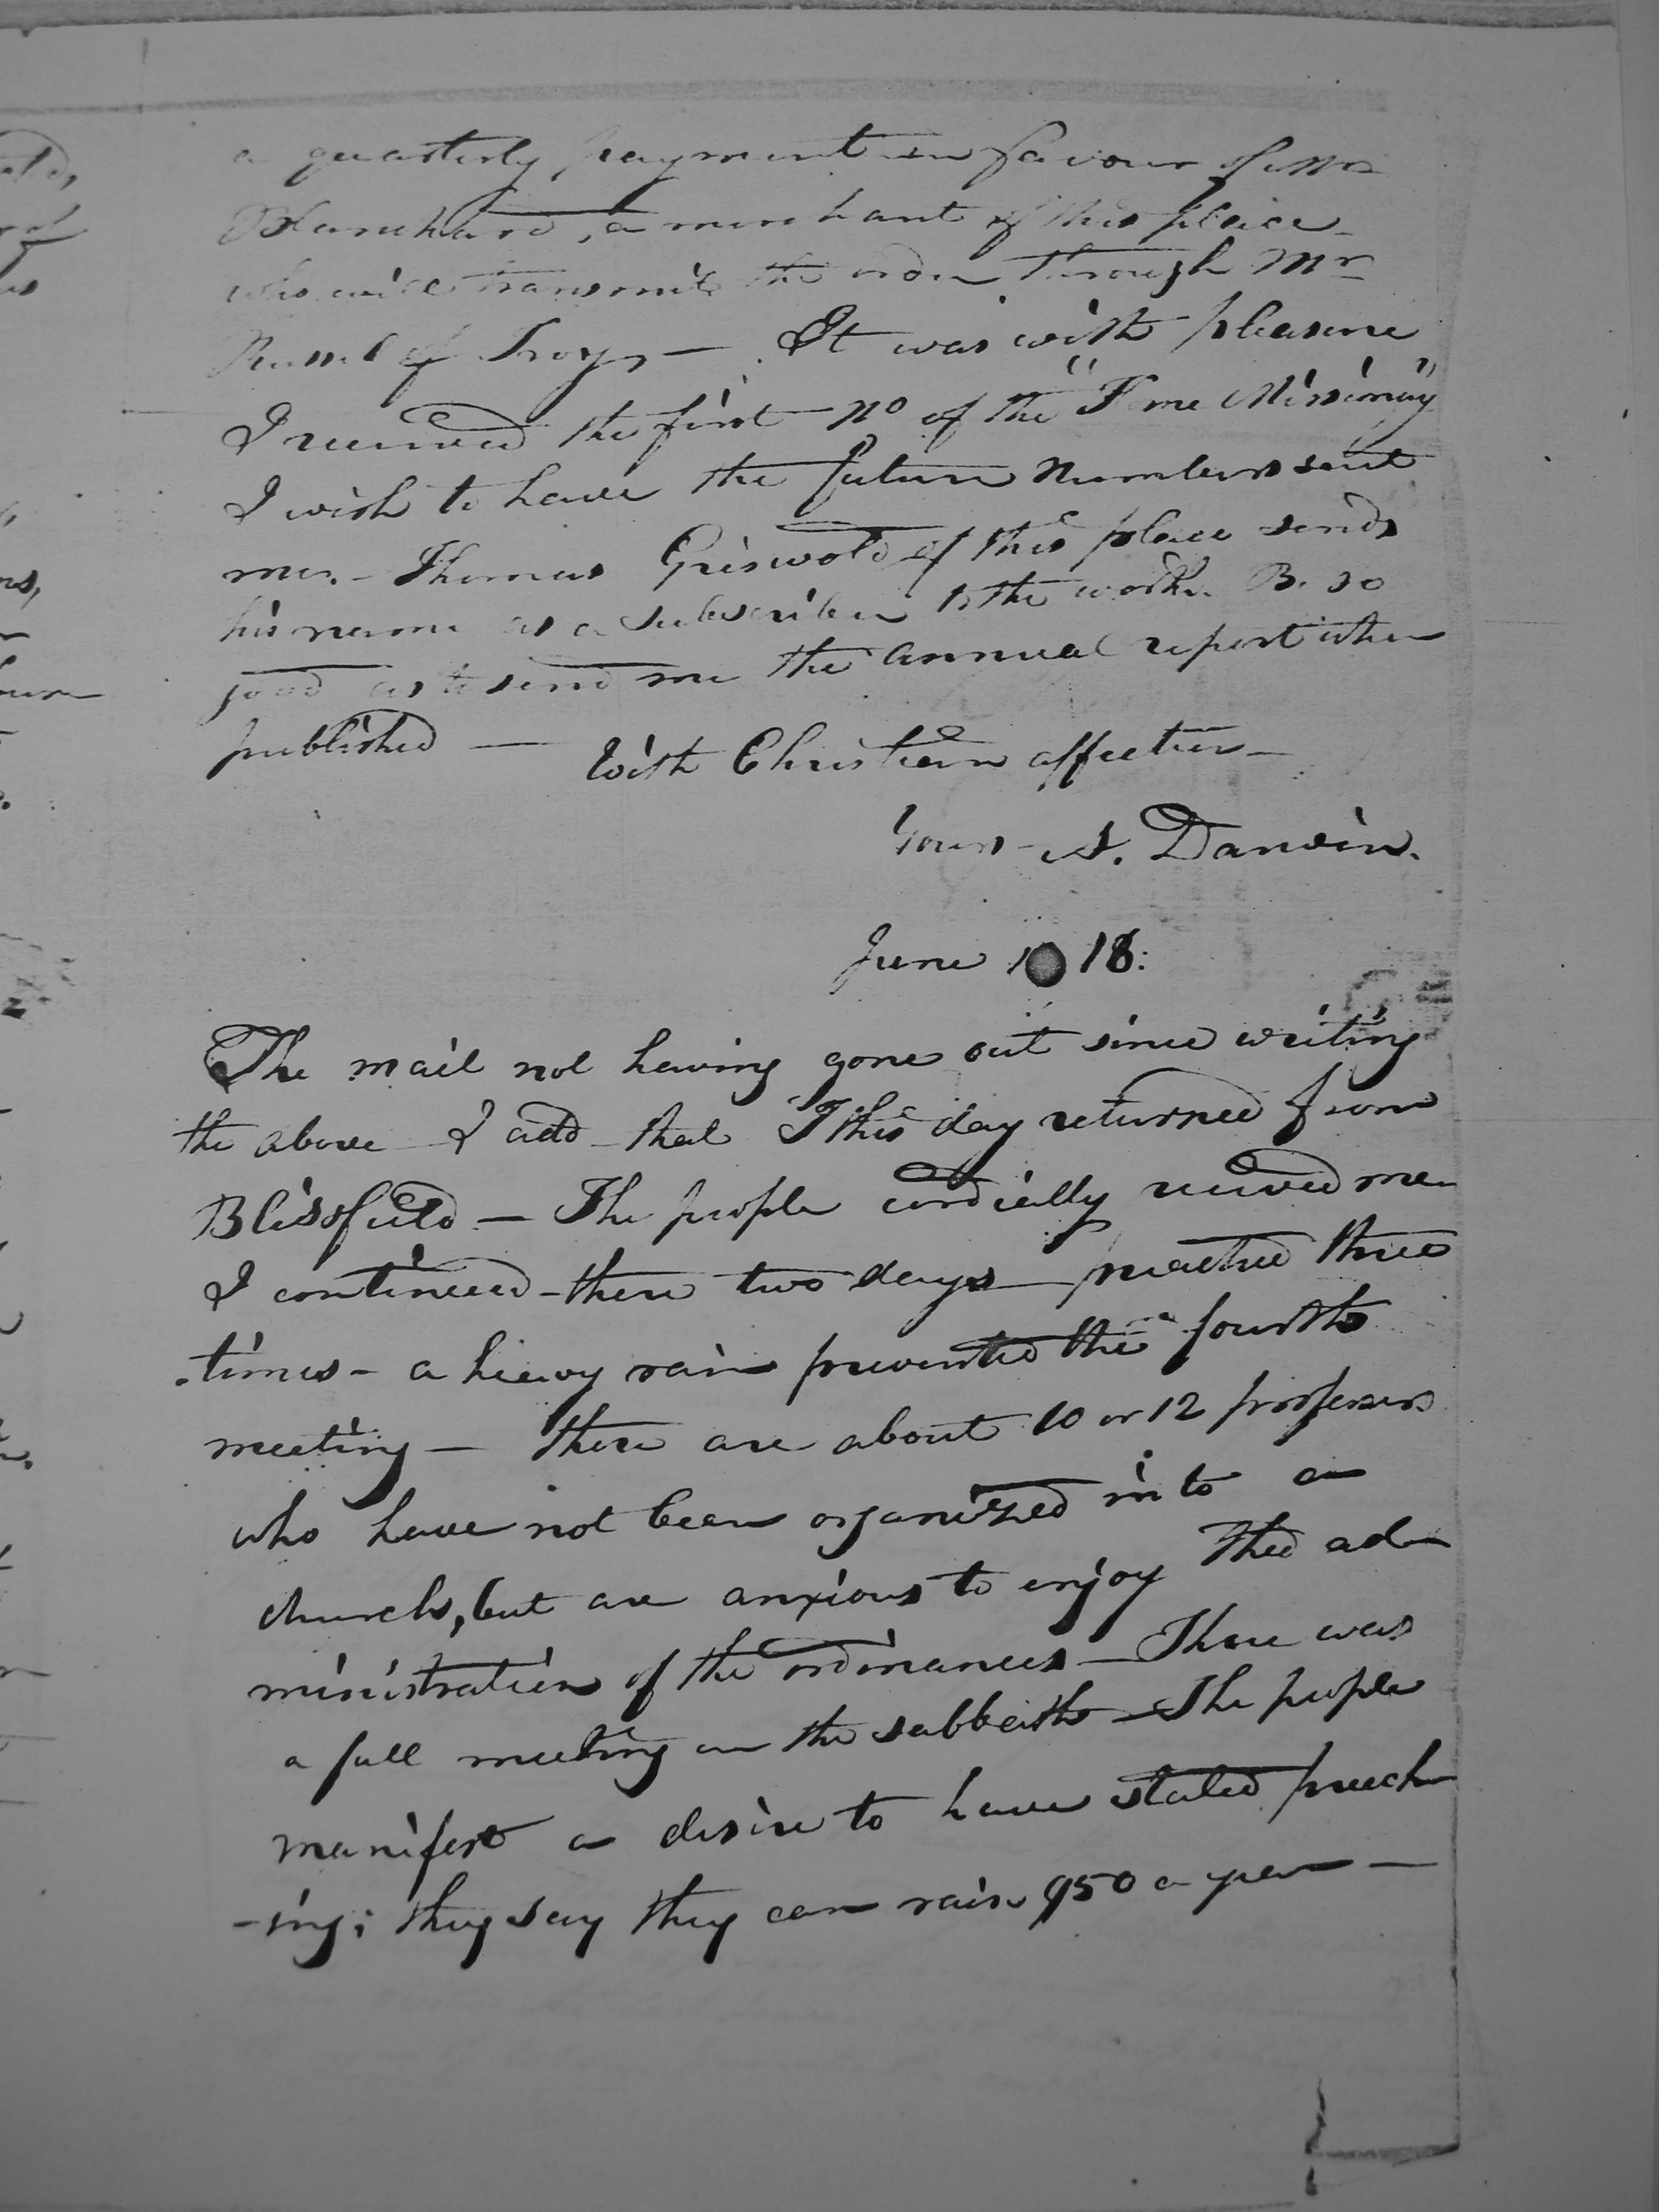 a quarterly payment in favour of Mr
Blanchard, a merchant of this place
who will transmit the order through Mr
Russel of Troy, — It was with pleasure
I received the first No of the "Home Missionary"
I wish to have the future numbers sent
me. - Thomas Griswold of this place sends
his name as a subscriber to the work. B. so
good as to send me the annual report when
published — With Christian affection —
Yours - A. Darwin.
June 18:
The mail not having gone out since writing
the above I add that I this day returned from
Blissfield — The people cordially received me
I continued there two days preached three
times - a heavy rain prevented the fourth
meeting — there are about 10 or 12 professors
who have not been organized into a
church, but are anxious to enjoy the ad-
ministration of the ordinances — There was
a full meeting on the sabbath — The people
manifest a desire to have stated preach
-ing; they say they can raise $50 a year —